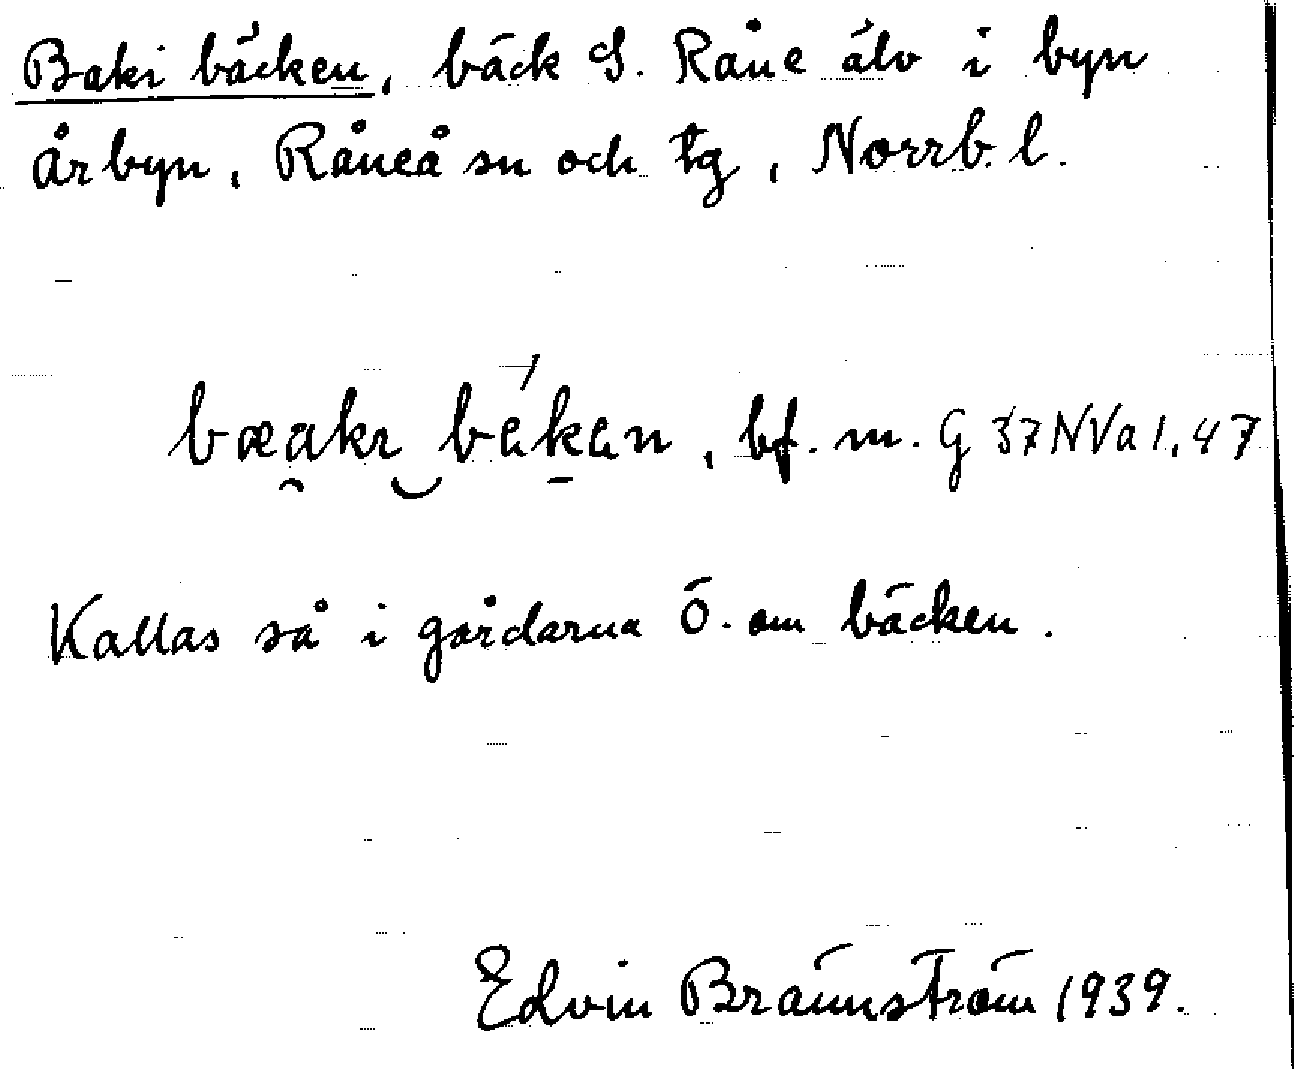 Baki bäcken, bäck S. Råne älv i byn
Årbyn, Råneå sn och tg, Norrb. l.
bæakɩ bäkän, bf. m. G 37 N Va 1, 47
Kallas så i gårdarna Ö. om bäcken.
Edvin Brännström 1939.